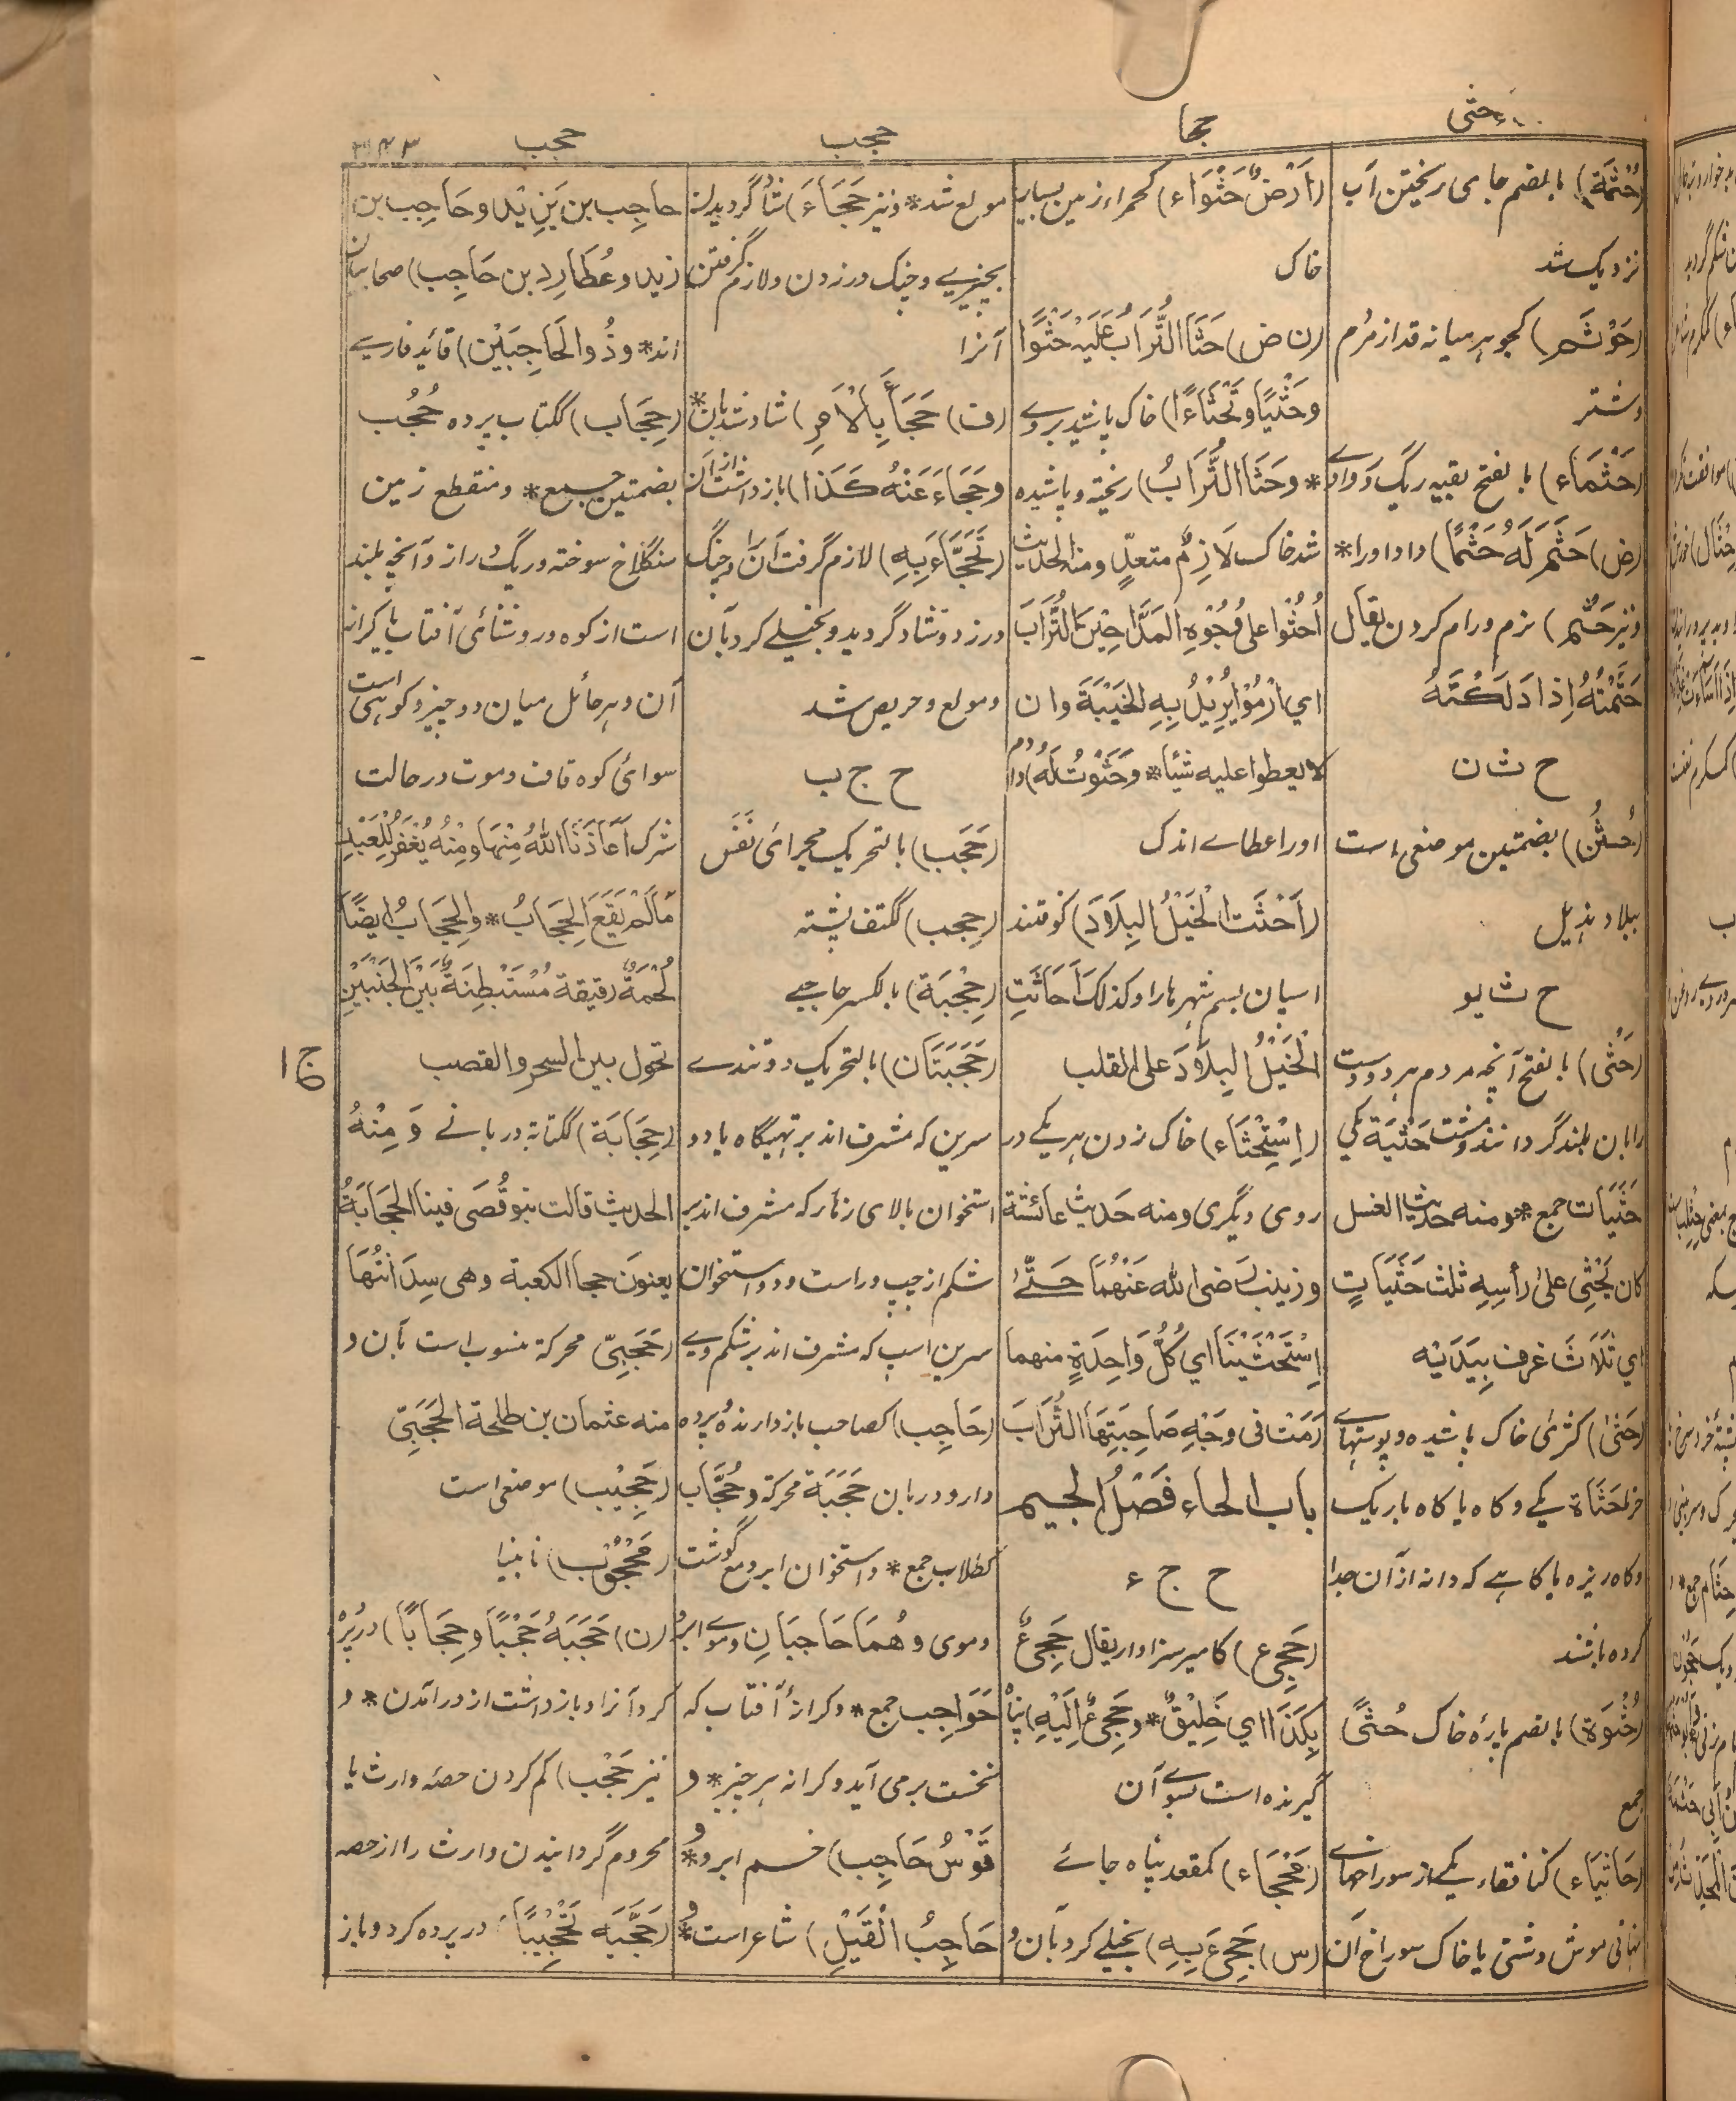 حثی
حجا
حجب
حجب
۳۴۳
(حُثْمَة) بالضم جای ریختن آب
نزدیک سد
(حَوْثَم) کجوهر میانه قد از مردم
وشتر
(حَثْمَاء) بالفتح بقیه ریگ
(ض) حَثَمَ لَهُ حَثْمًا) داد اورا*
ونیز حَثْم) نرم ورام کردن یقال
حَثَمْتُهُ اِذَا دَلَكْتَهُ
ح ث ن
(حُثُن) بضمتین موضعی است
ببلاد هذیل
ح ث ی و
(حَثْی) بالفتح آنچه مردم هر دو دست
رابان بلند گردانند حَثْیَة یکی
حَثَیَات جمع* ومنه حدیث الغسل
کان یَحْثِی علی رأسِهِ ثلث حَثَیَاتٍ
اي ثَلَاثَ غرف بِیَدَیْه
(حَثیٰ) کثریٰ خاک پاشیده وپوستهای
خرما حَثَاة یکی وکاه یا کاه باریک
وکاه ریزه یا کاهی که دانه ازان جدا
کرده باشند
(حُثْوَة) بالضم پارۀ خاک حُثًی
جمع
(حَاثِیَاء) کنافقاء یکی از سوراخهای
نهانی موش دشتی یا خاک سوراخ آن
(اَرْضٌ حَثْوَاء) کحمراء زمین بسیار
خاک
(ن ض) حَثَا التُّرَابُ عَلَیْهِ حَثْوًا
وحَثْیًا وتَحْثَاءً) خاک پاشید بروی
* وحَثَا التُّرَابُ) ریخته وپاشیده
شد خاک لَازِمٌ متعدٍّ ومنه الحدیث
اُحْثُوا علی وُجُوْهِ المَدَّاحِیْنَ التُّرَابَ
اي ارْمُوْا یُرِیْدُ بِهِ الخَیْبَةَ وان
لا یعطوا علیه شیئا* وحَثَوْتُ لَهُ) دادم
اورا عطاے اندک
(اَحْثَت الْخَیْلُ البِلَادَ) کوفتند
اسپان بسم شهرها را وکذلک اَحَاثَتِ
الْخَیْلُ البِلَادَ علی القلب
(اِسْتِحْثَاء) خاک زدن هر یکی در
روی دیگری ومنه حدیث عائشة
وزینب رضی الله عَنْهُمَا حَتّٰی
اِسْتَحْثَیْنَا اي کُلُّ وَاحِدَةٍ منهما
رَمَتْ فی وَجْهِ صَاحِبَتِهَا التُّرَابَ
باب الحاء فَصْلُ الجیم
ح ج ء
(حَجِیء) کامیر سزاوار یقال حَجِیءٌ
بِکَذَا اي خَلِیْقٌ* وحَجِیءٌ اِلَیْهِ) پناه
گیرنده است بسوی آن
(مَحْجَاء) کمقعد پناه جائے
(س) حَجِیءَ بِهِ) بخیلے کرد بان و
مولع شد* ونیز حَجَاءَ) شاد گردیدن
بچیزے وچنگ در زدن ولازم گرفتن
آنرا
(ف) حَجَأَ بِالْاَمْرِ) شاد شد بان*
وحَجَاءَ عَنْهُ کَذَا) باز داشت ازان
(تَحَجَّاءَ بِهِ) لازم گرفت آن را وچنگ
در زد وشاد گردید وبخیلے کرد بان
ومولع وحریص شد
ح ج ب
(حَجَب) بالتحریک مجرائ نَفَس
(حِجب) ککتف پشته
(حِجْبَة) بالکسر حاجبے
(حَجَبَتَان) بالتحریک دو تندے
سرین که مشرف اند بر تهیگاه یا دو
استخوان بالای زهار که مشرف اند بر
شکم از چپ وراست ودو استخوان
سرین اسپ که مشرف اند بر شکم وے
(حَاجِب) کصاحب باز دارنده وپرده
دار ودربان حَجَبَة محرکة وحُجَّاب
کطلاب جمع* واستخوان ابرو مع گوشت
وموی وهُمَا حَاجِبَانِ وموے ابرو
حَوَاجِب جمع* وکرانۀ آفتاب که
نخست برمی آید وکرانه هر چیز* و
قَوْسُ حَاجِب) خسم ابرو* و
حَاجِبُ الْفِیْلِ) شاعر است* و
حاجِب بن یَزِیْد وحَاجِب بن
زید وعُطَارِد بن حَاجِب) صحابیان
اند* وذُو الحَاجِبَیْن) قائد فارسے
(حِجَاب) ککتاب پرده حُجُب
بضمتین جمع* ومنقطع زمین
سنگلاخ سوخته وریگ دراز وآنچه بلند
است از کوه وروشنائی آفتاب یا کرانه
آن وهر حائل میان دو چیز وکوهی است
سوائ کوه قاف وموت در حالت
شرک اَعَاذَنَا اللّٰهُ مِنْهَا ومِنْهُ یُغْفَرُ لِلْعَبْدِ
مَا لَمْ یَقَعِ الحِجَابُ* والحِجَابُ ایضًا
لُحْمَةٌ رقیقة مُسْتَبْطِنَةٌ بَیْنَ الجَنْبَیْنِ
تحول بین السحر والقصب
(حِجَابَة) ککتابة دربانے وَمِنْهُ
الحدیث قالت بنو قُصَی فینا الحِجَابَةُ
یعنون حجا الکعبة وهی سِدَانَتُهَا
(حَجَبِیّ) محرکة منسوب است بان و
منه عثمان بن طلحة الحَجَبِیّ
(حَجِیْب) موضعی است
(مَحْجُوْب) نابینا
(ن) حَجَبَهُ حَجْبًا وحِجَابًا) در پرده
کرد آنرا وباز داشت از درآمدن* و
نیز حَجْب) کم کردن حصۀ وارث یا
محروم گردانیدن وارث را از حصه
(حَجَّبَه تَحْجِیْبًا) در پرده کرد وباز
ج ا